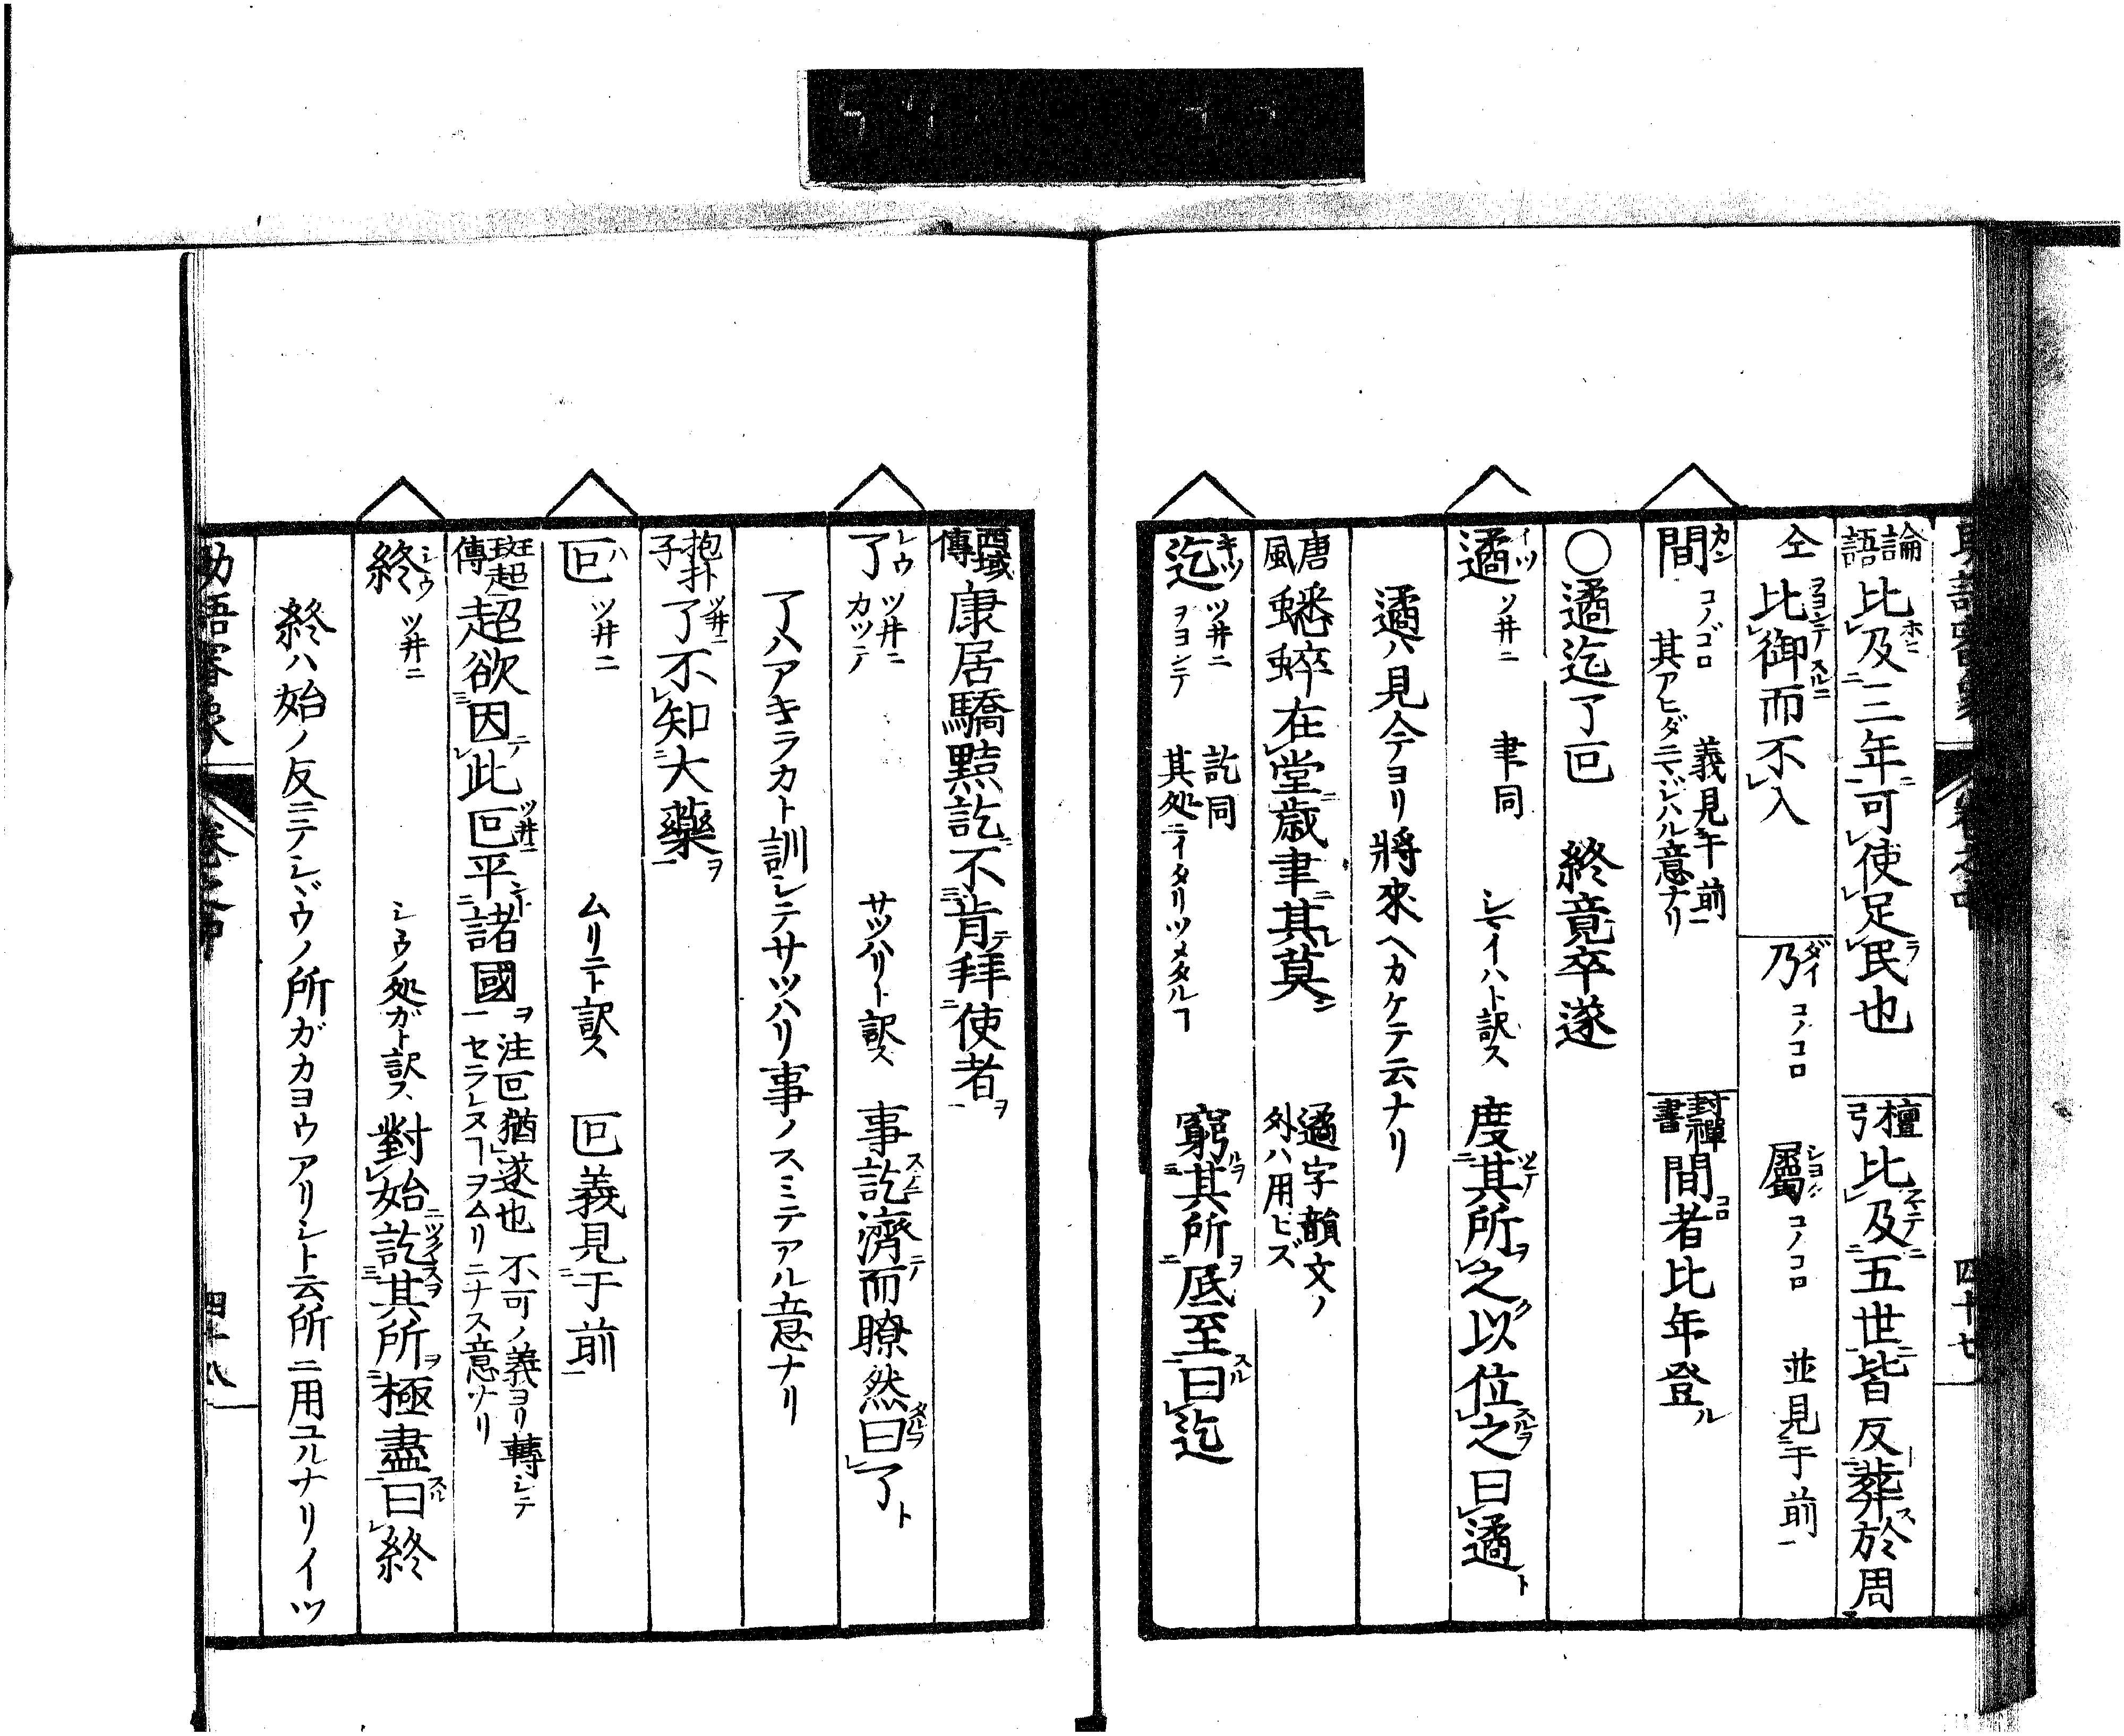 論語 比及三年可使足民也 檀弓 比及五世皆反葬於周
仝 比御而不入 乃 ダイ コノコロ 屬 ショク コノコロ 並見于前
間 カン コノゴロ 義見于前 其アヒダニマジハル意ナリ 封禪書 間者比年登ル
○遹迄了叵 終竟卒遂
遹 イツ ツ井ニ 聿同 シマイハト訳ス 度其所之以位之曰遹ト
遹ハ見今テヨリ將來ヘカケテ云ナリ
唐風 蟋蟀在堂歳聿其莫 遹字韻文ノ外ハ用ヒズ
迄 キツ ツ井ニ ヲヨンテ 訖同 其処ニイタリツメタルヿ 窮其所底至曰迄
西域傳 康居驕黠訖不肯拜使者ヲ
了 レウ ツ井ニ カツテ サツハリト訳ス 事訖濟而瞭然曰了ト
了ハアキラカト訓シテサツハリ事ノスミテアル意ナリ
抱朴子 了不知大藥ヲ
叵 ハ ツ井ニ ムリニト訳ス 叵義見于前
班超傳 超欲因此叵平諸國ヲ 注叵猶遂也 不可ノ義ヨリ轉シテセラレヌヿヲムリニナス意ナリ
終 シウ ツ井ニ シマウノ処ガト訳ス 對始訖其所極盡曰終
終ハ始ノ反ニテシマウノ所ガカヨウアリシト云所ニ用ユルナリイツ
四十八